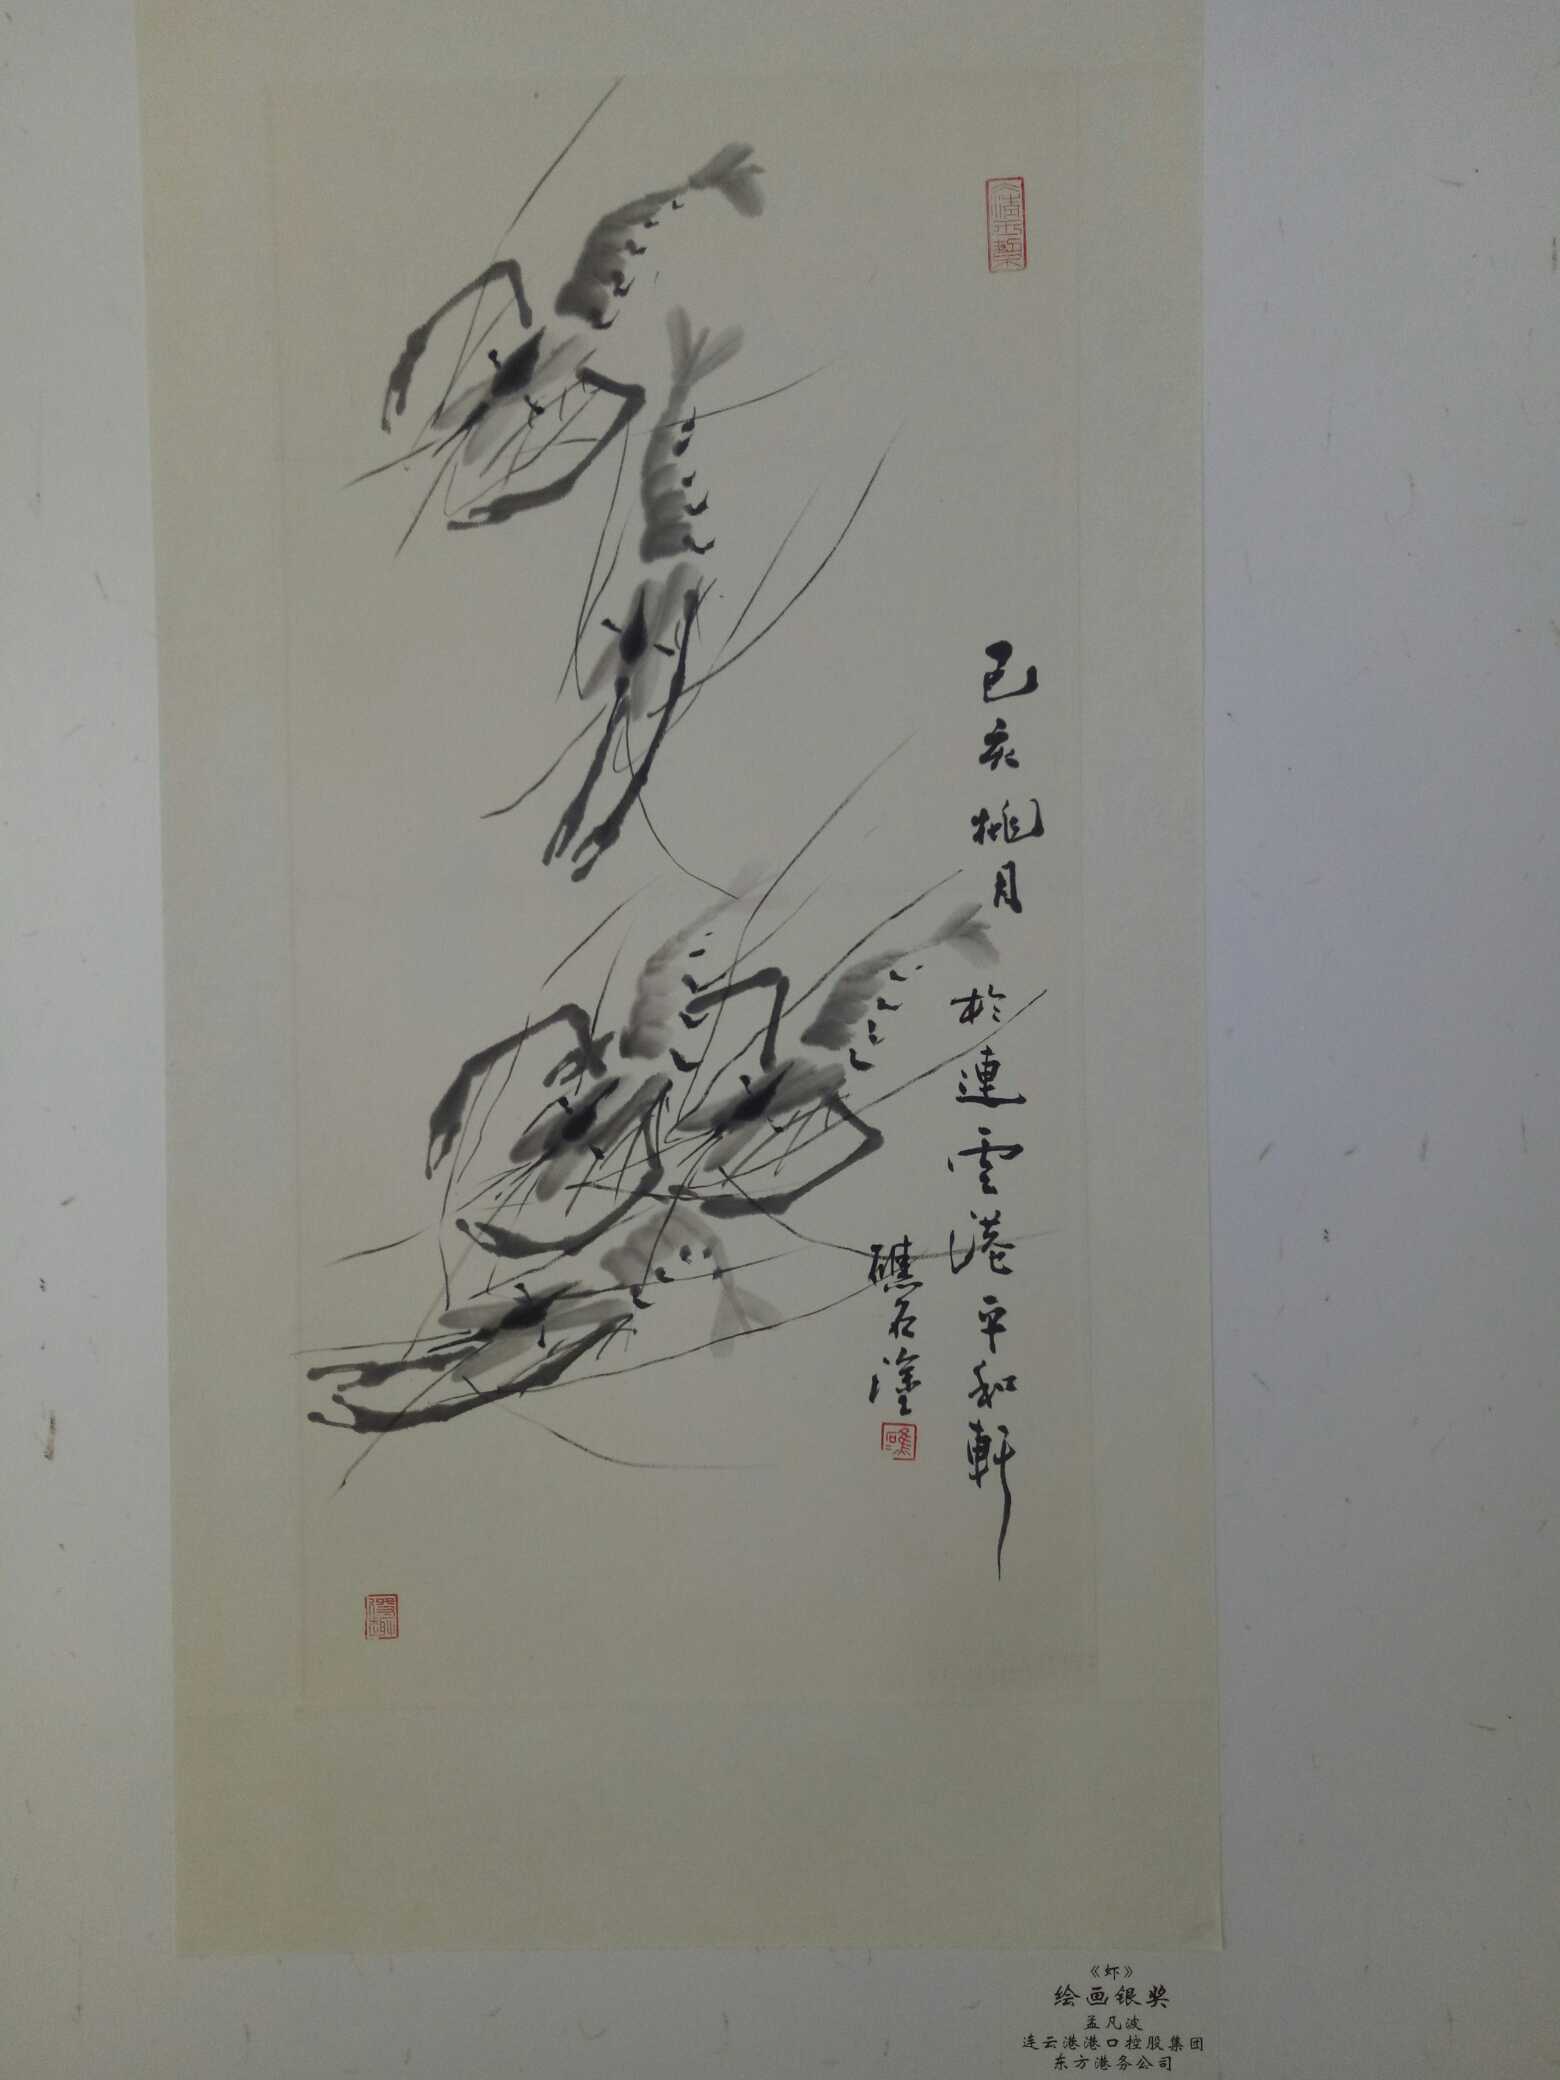 己亥桃月於連雲港平和軒
礁石塗
《虾》
绘画银奖
孟凡波
连云港港口控股集团
东方港务公司